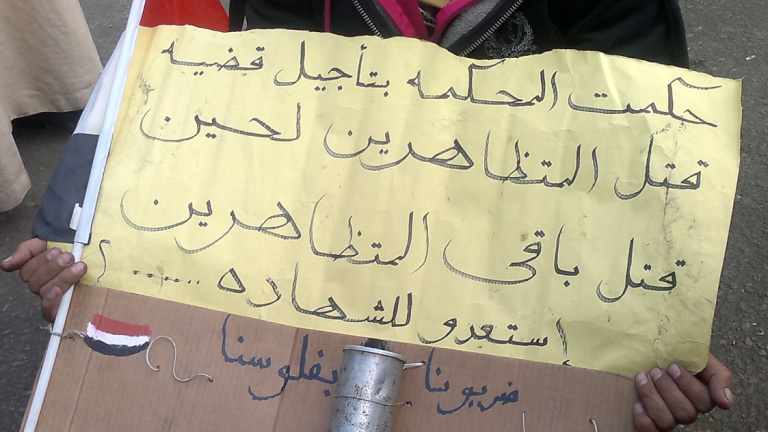 حكمت المحكمه بتأجيل قضيه
قتل المتظاهرين لحين
قتل باقى المتظاهرين
إستعدو للشهاده ......
ضربونا بفلوسنا